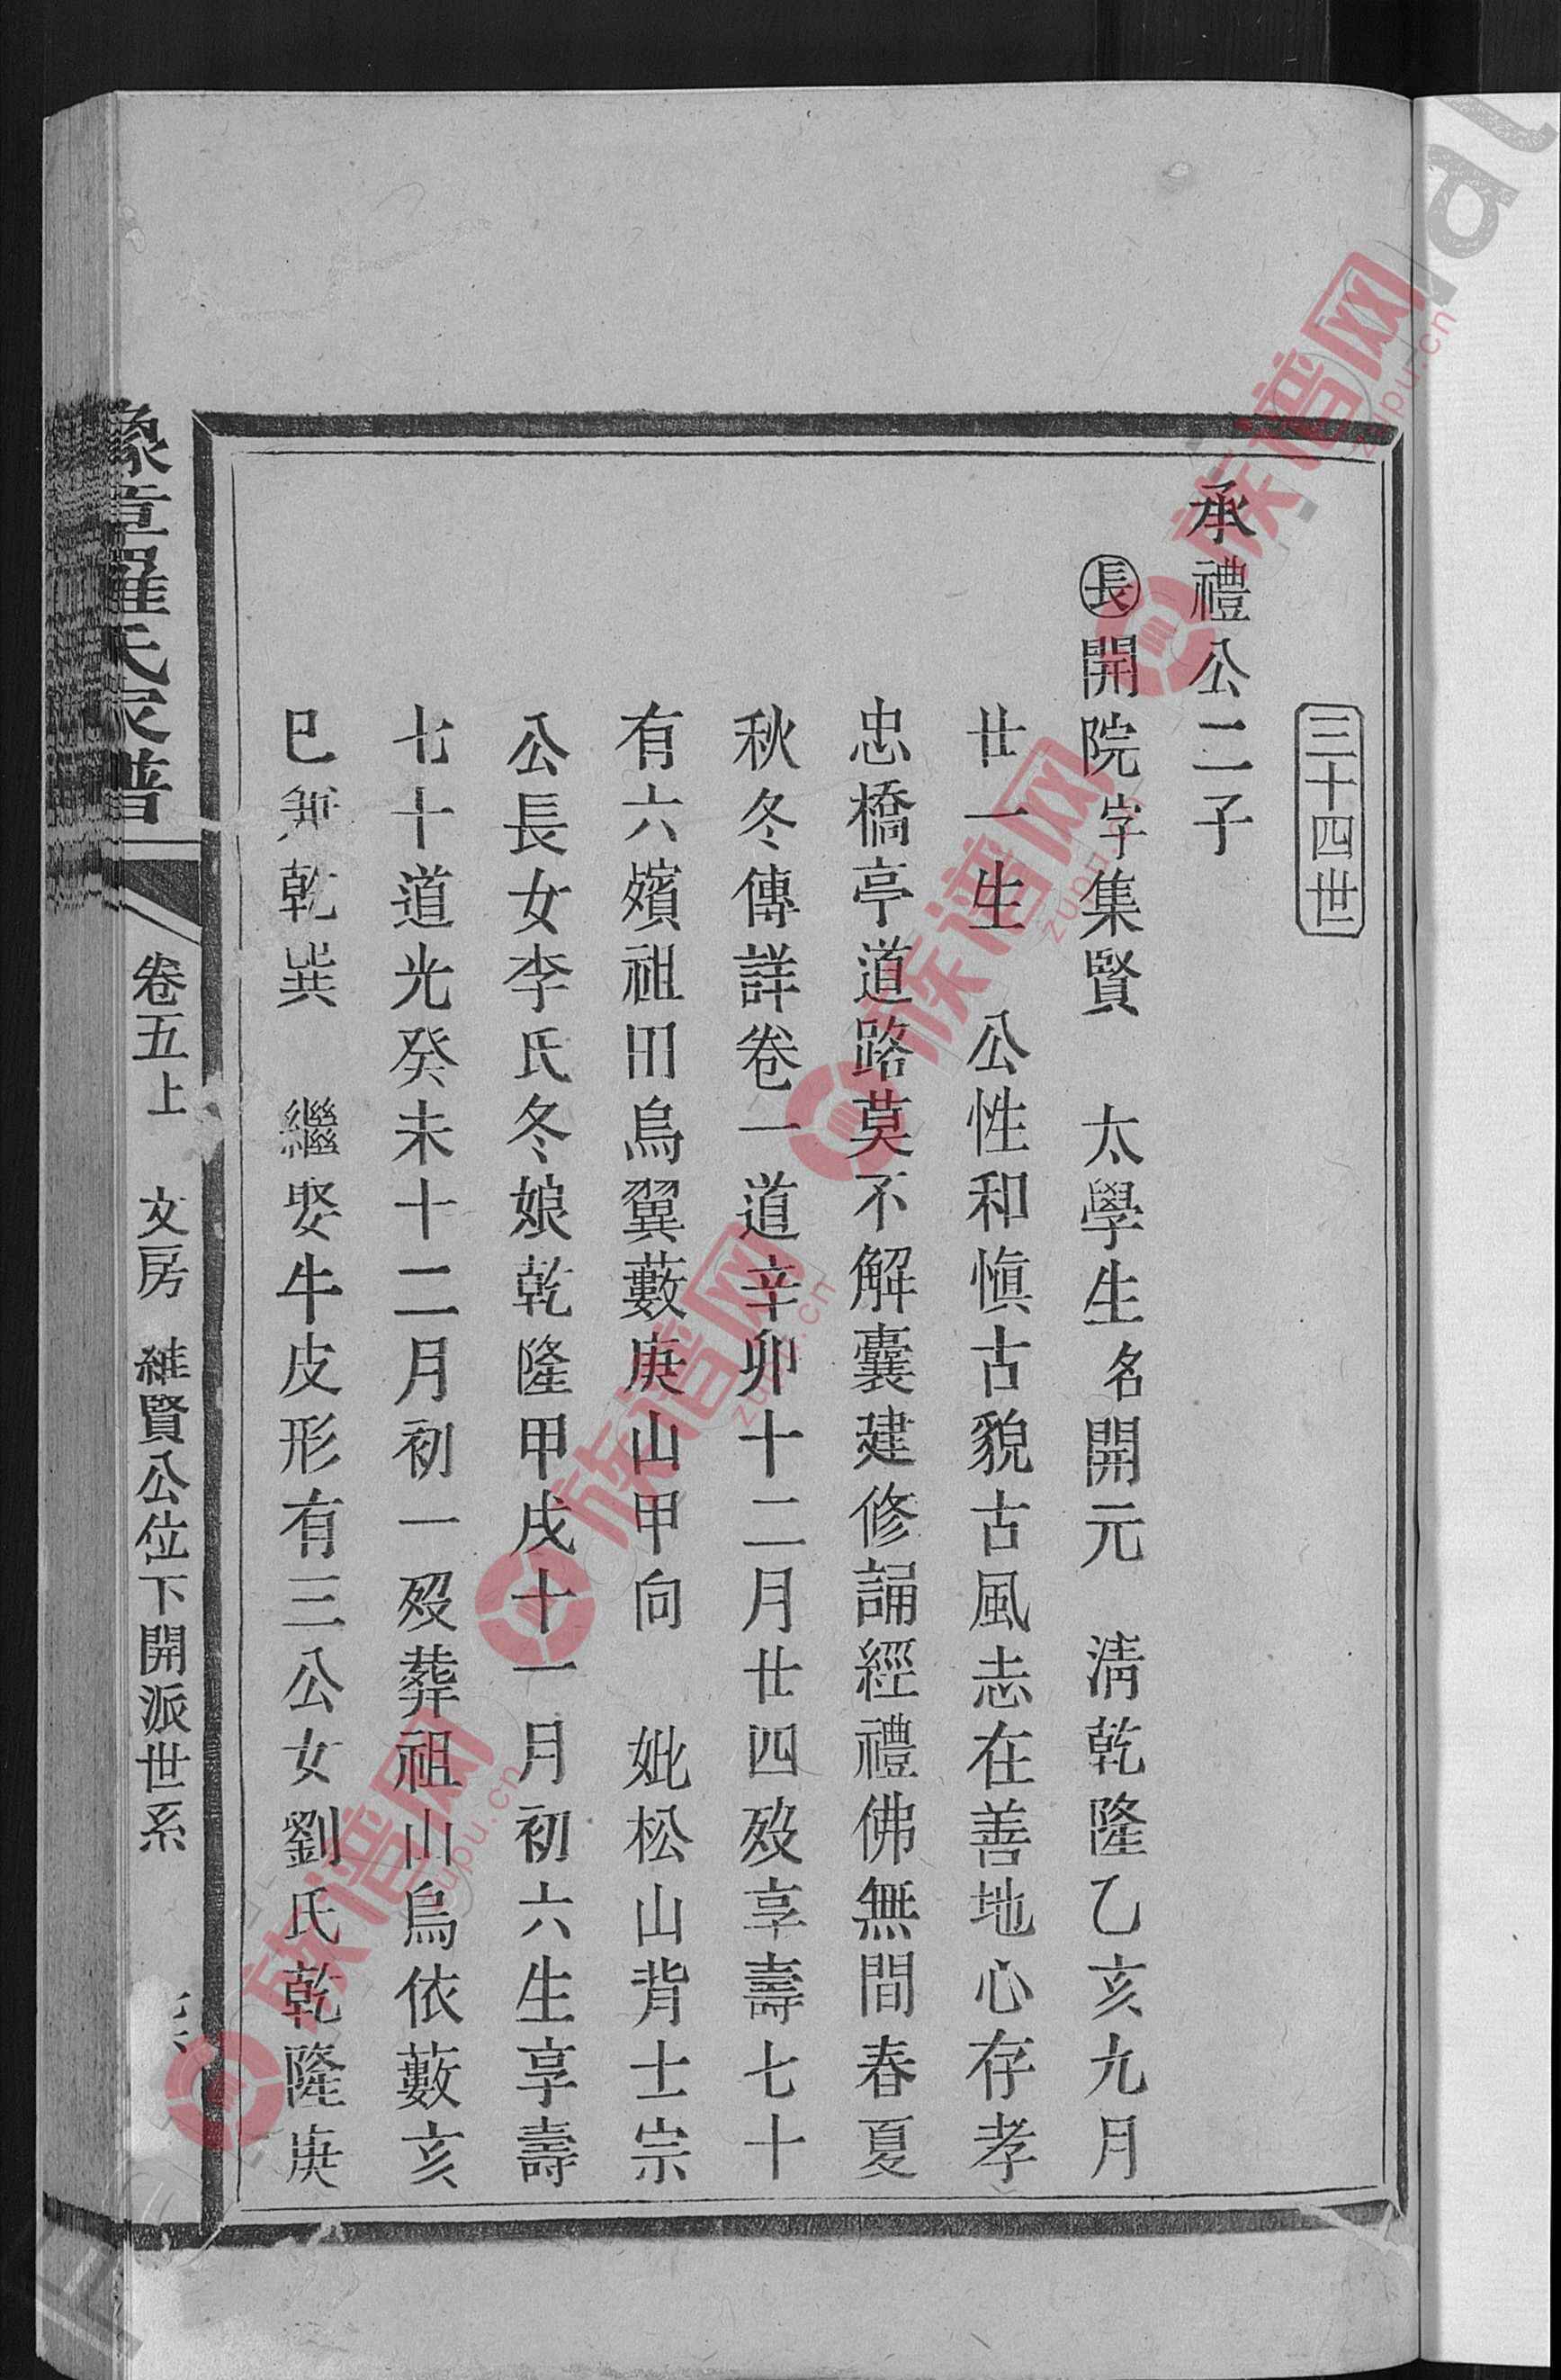 三十四世
承禮公二子
長開院字集賢 太學生名開元 淸乾隆乙亥九月
廿一生 公性和愼古貌古風志在善地心存孝
忠橋亭道路莫不解囊建修誦經禮佛無間春夏
秋冬傳詳卷一道辛卯十二月廿四歿享壽七十
有六殯祖田烏翼藪庚山甲向 妣松山背士宗
公長女李氏冬娘乾隆甲戌十一月初六生享壽
七十道光癸未十二月初一歿葬祖山烏依藪亥
巳兼乾巽 繼娶牛皮形有三公女劉氏乾隆庚
豫章羅氏家譜
卷五上 文房 維賢公位下開派世系
族谱网
zupu.cn
族谱网
zupu.cn
族谱网
zupu.cn
族谱网
zupu.cn